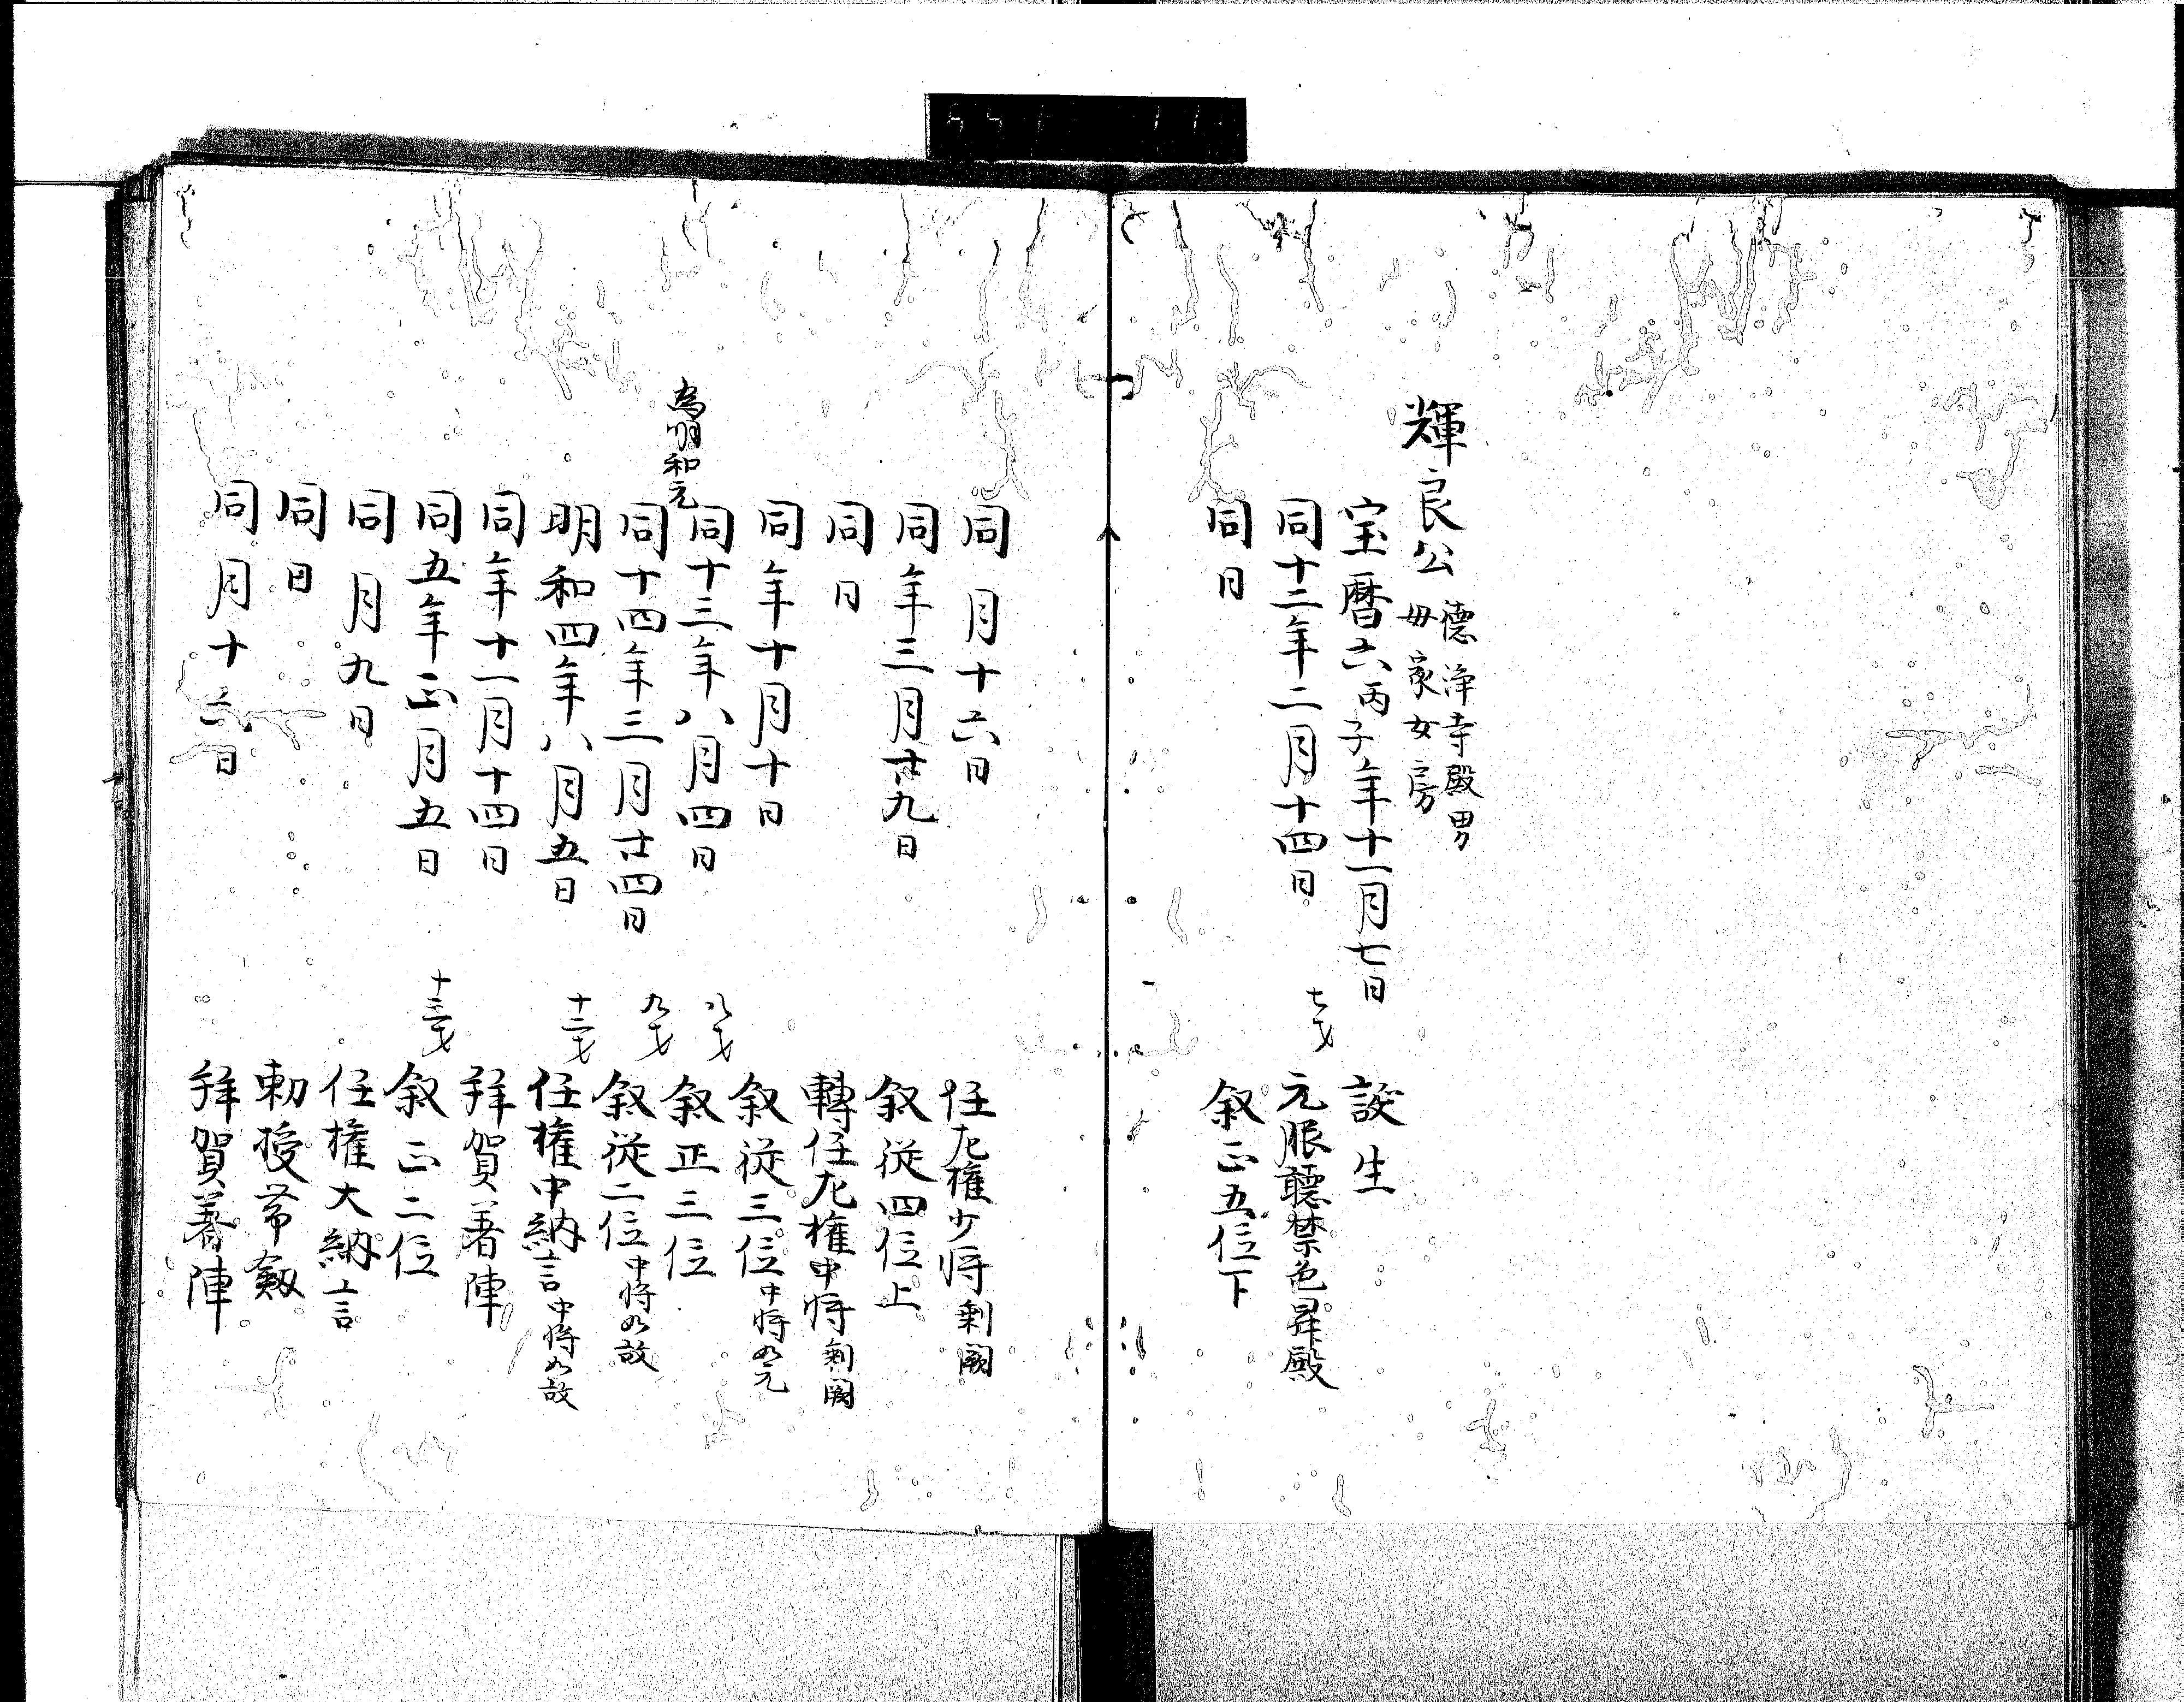 輝良公 徳浄寺殿男
母家女房
宝暦六丙子年十一月七日 誕生
同十二年二月十四日 七才 元服聴禁色昇殿
同日 叙正五位下
同月十六日 任左権少将剰闕
同年三月廿九日 叙従四位上
同日 轉任左権中将剰闕
同年十月十日 叙従三位中将如元
同十三年八月四日 八才 叙正三位
為明和元
同十四年三月廿四日 九才 叙従二位中将如故
明和四年八月五日 十二才 任権中納言中将如故
同年十一月十四日 拜賀著陣
同五年正月五日 十三才 叙正二位
同月九日 任権大納言
同日 勅授帯劔
同月十六日 拜賀著陣